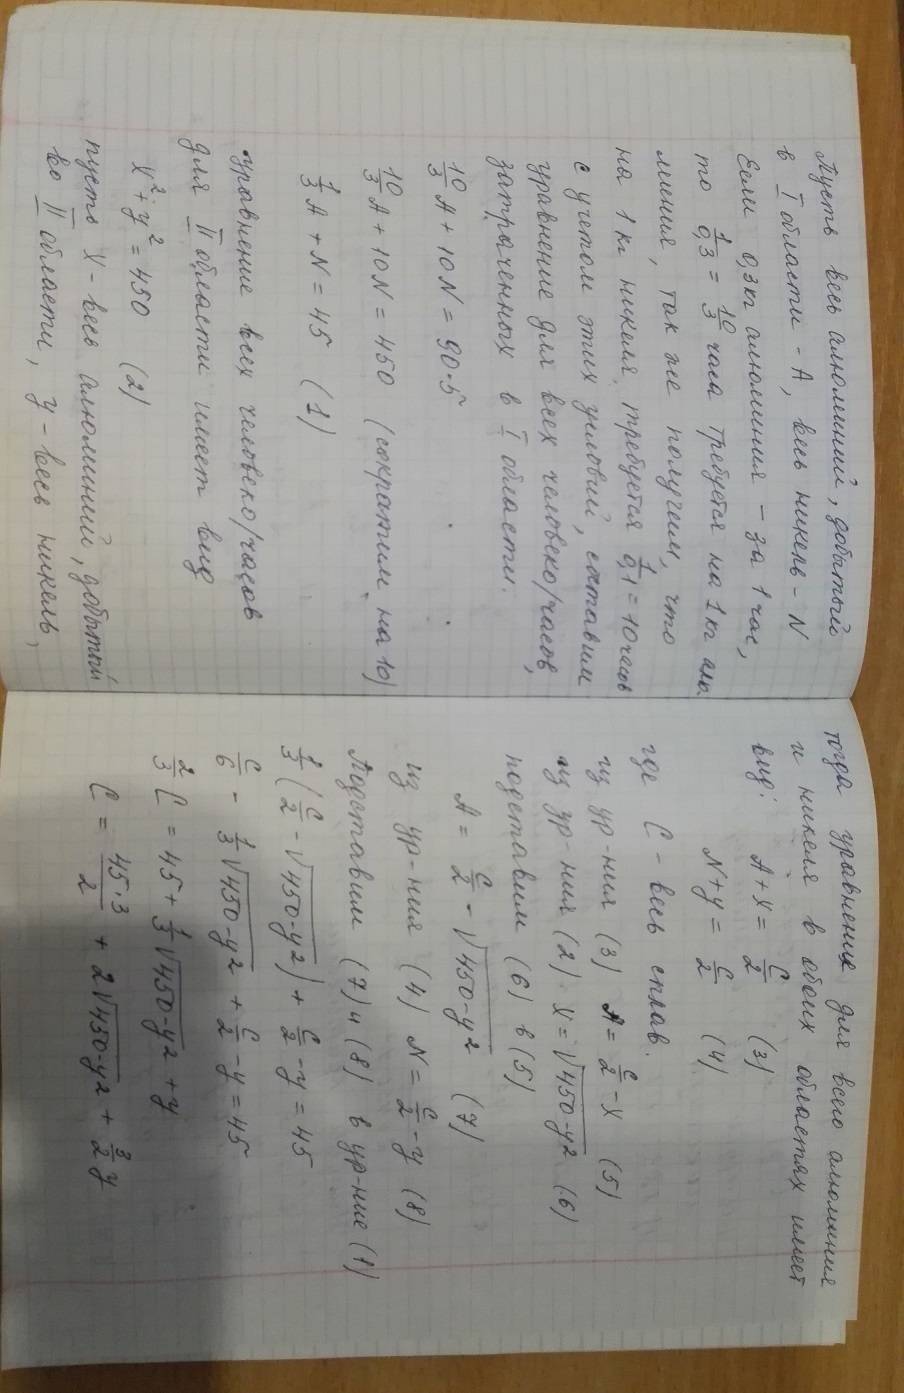 Пусть весь алюминий, добытый
в I области - А, весь никель - N
Если 0,3кг алюминия - за 1 час,
то 1/0,3 = 10/3 часа требуется на 1 кг алю
миния, так же получим, что
на 1 кг никеля требуется 1/0,1 = 10 часов
с учетом этих условий, составим
уравнение для всех человеко/часов,
затраченных в I области.
10/3 A + 10N = 90·5
10/3 A + 10N = 450 (сократим на 10)
1/3 A + N = 45 (1)
уравнение всех человеко/часов
для II области имеет вид
x² + y² = 450 (2)
пусть x - весь алюминий, добытый
во II области, y - весь никель,
тогда уравнение для всего алюминия
и никеля в обоих областях имеет
вид: A + x = C/2 (3)
N + y = C/2 (4)
где C - весь сплав.
из ур-ния (3) A = C/2 - x (5)
из ур-ния (2) x = √(450-y²) (6)
подставим (6) в (5)
A = C/2 - √(450-y²) (7)
из ур-ния (4) N = C/2 - y (8)
Подставим (7) и (8) в ур-ние (1)
1/3 (C/2 - √(450-y²)) + C/2 - y = 45
C/6 - 1/3 √(450-y²) + C/2 - y = 45
2/3 C = 45 + 1/3 √(450-y²) + y
C = 45·3/2 + 2√(450-y²) + 3/2 y